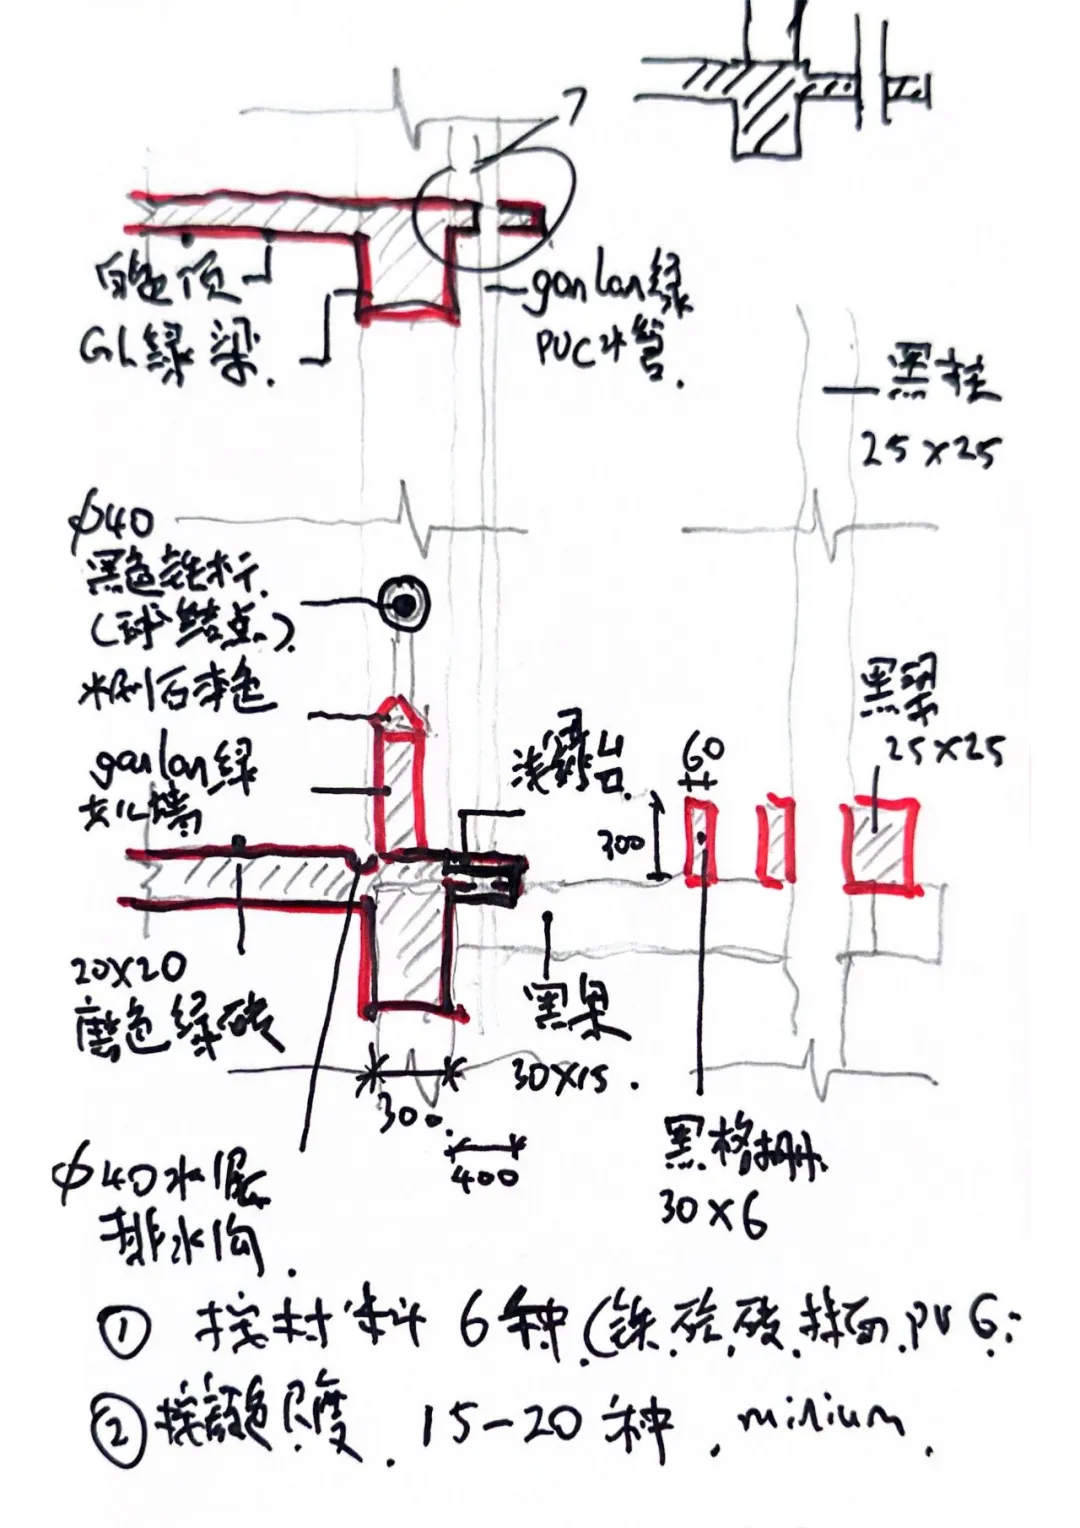 7
白色顶
GL绿梁.
ganlan绿
PUC水管.
黑柱
25×25
φ40
黑色铁杆.
(球结点).
水刷石本色
ganlan绿
浅绿台.
60
300
黑梁
25×25
20×20
磨色绿砖
黑梁
30×15.
300.
400
黑格栅.
30×6
φ40水泥
排水沟.
① 按材料 6种(铁.砼.砖.抹面.PVG.:
② 按颜色尺度. 15-20种. minium.